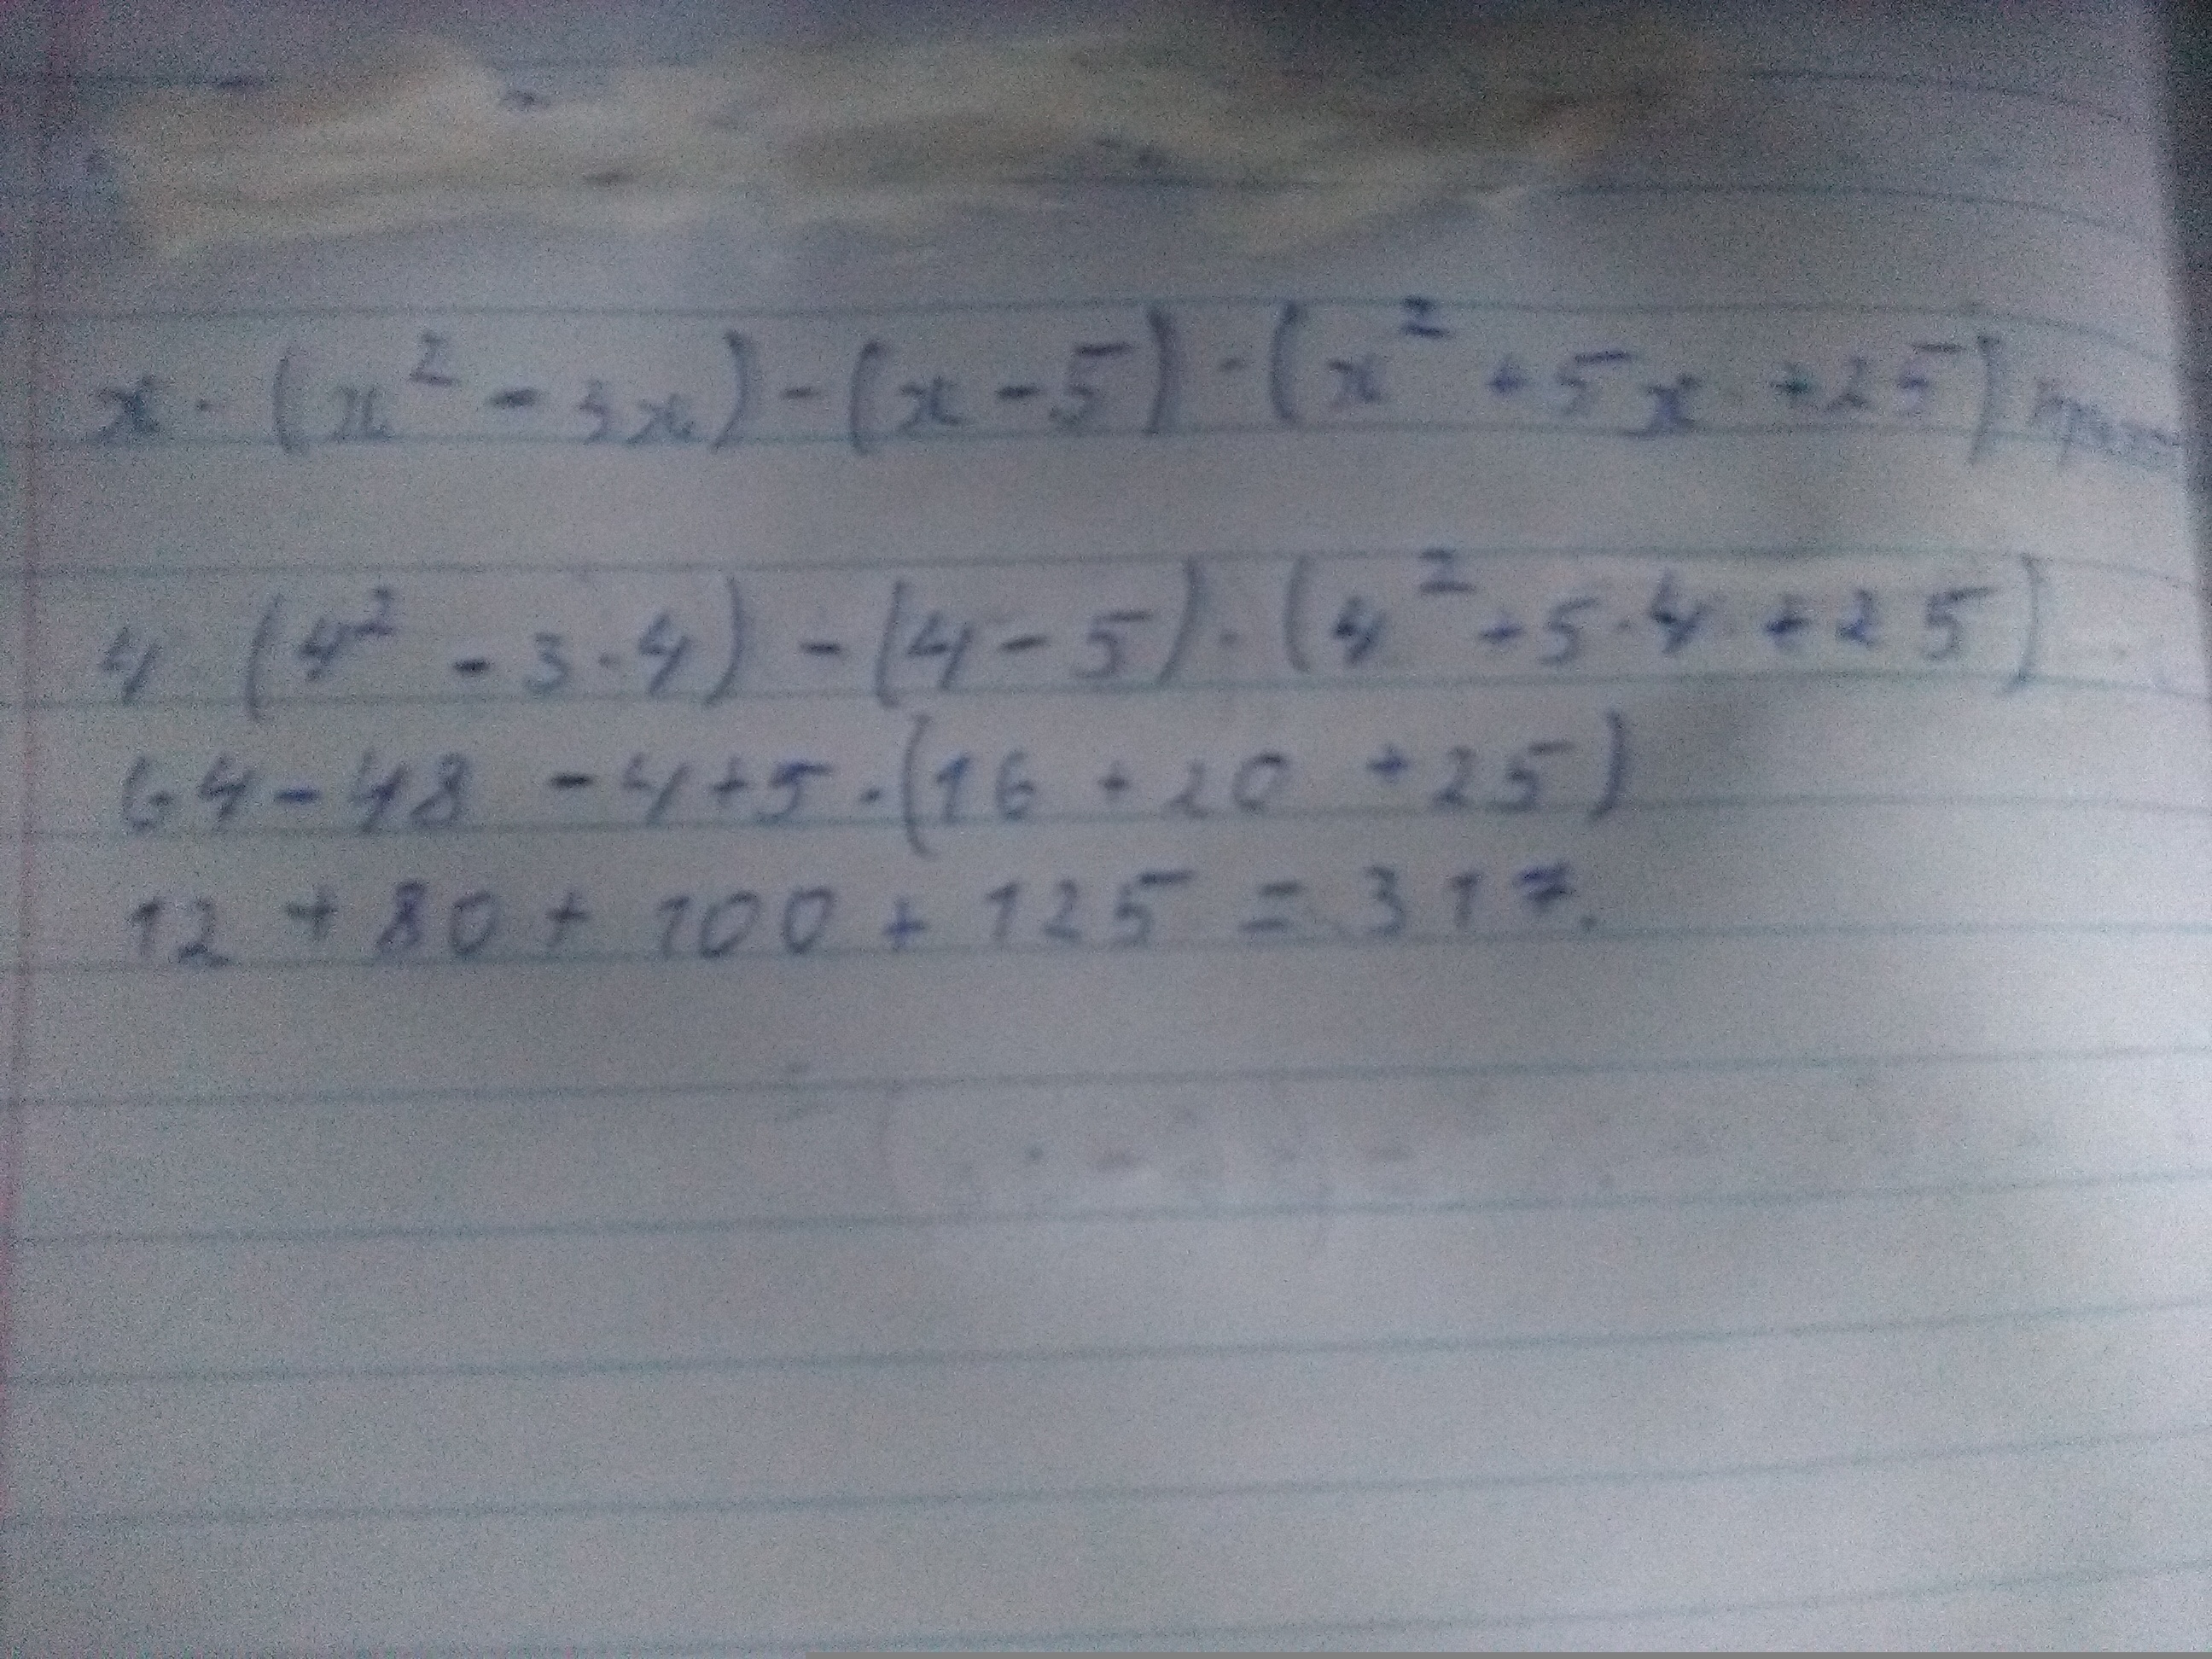 x · (x² - 3x) - (x - 5) · (x² + 5x + 25) при
4 (4² - 3 · 4) - (4 - 5) · (4² + 5 · 4 + 25)
64 - 48 - 4 + 5 · (16 + 20 + 25)
12 + 80 + 100 + 125 = 317.